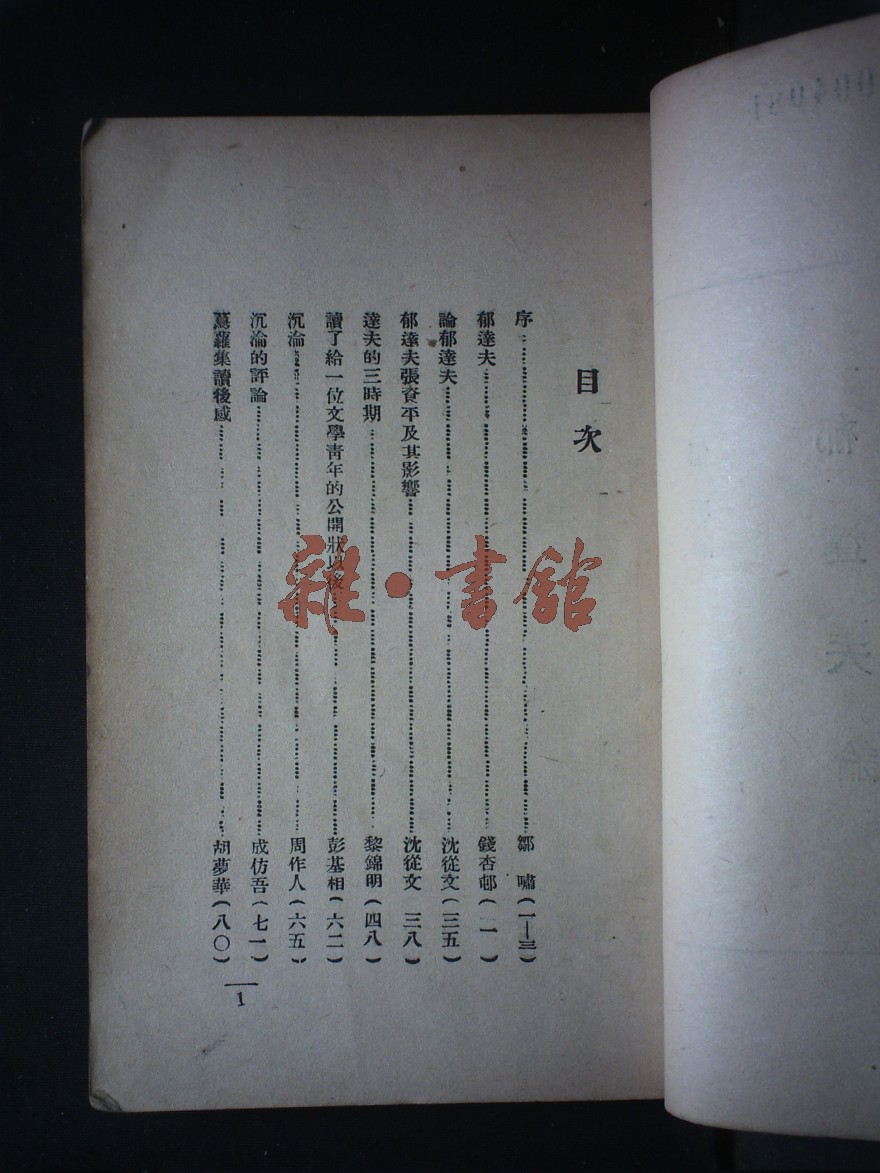 目次
序……鄒 嘯(一—三)
郁達夫……錢杏邨(一)
論郁達夫……沈從文(三五)
郁達夫張資平及其影響……沈從文 三八)
達夫的三時期……黎錦明(四八)
讀了給一位文學靑年的公開狀以後……彭基相(六二)
沉淪……周作人(六五)
沉淪的評論……成仿吾(七一)
蔦蘿集讀後感……胡夢華(八〇)
1
雜·書館